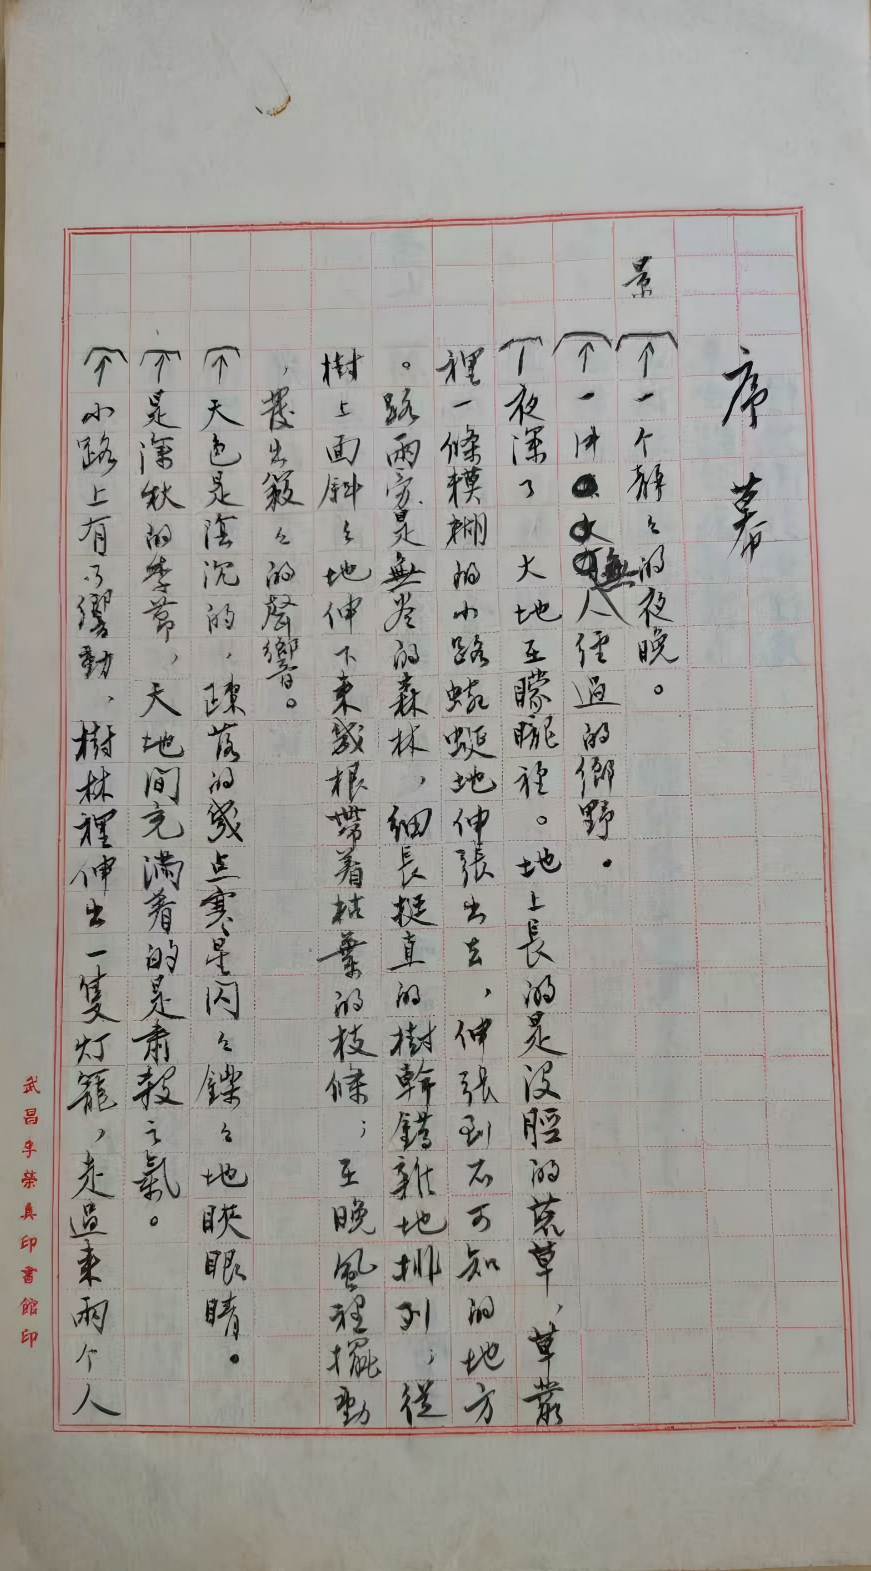 序幕
景
一个靜々的夜晚。
一片無人經過的鄉野。
夜深了 大地在朦朧裡。地上長的是沒脛的荒草,草叢
裡一條模糊的小路蜿蜒地伸張出去,伸張到不可知的地方
。路兩旁是無盡的森林,細長挺直的樹幹錯雜地排列;從
樹上面斜々地伸下來幾根帶着枯葉的枝條;在晚風裡擺動
,發出簌々的聲響。
天色是陰沉的,踈落的幾点寒星閃々鑠々地䀹眼睛。
是深秋的季節,天地間充滿着的是肅殺之氣。
小路上有了響動,樹林裡伸出一隻灯籠,走過來兩个人
武昌李榮真印書館印